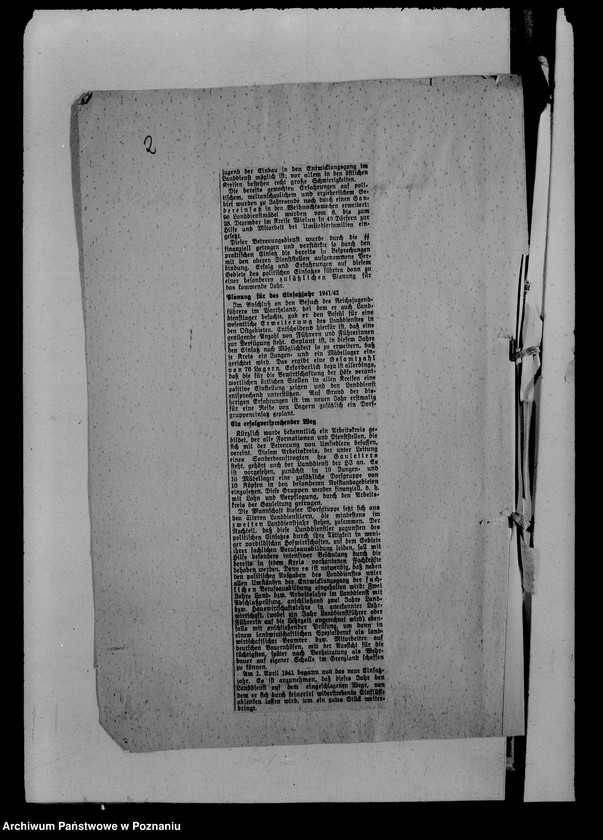 2
jugend der Einbau in den Entwicklungsgang im
Landdienst möglich ist; vor allem in den östlichen
Kreisen bestehen recht große Schwierigkeiten.
Die bereits gemachten Erfahrungen auf poli-
tischem, weltanschaulichem und erzieherischem Ge-
biet wurden zu Jahresende noch durch einen Son-
dereinsatz in den Weihnachtswochen erweitert:
96 Landdienstmädel wurden vom 6. bis zum
28. Dezember im Kreise Wielun in 40 Dörfern zur
Hilfe und Mitarbeit bei Umsiedlerfamilien ein-
gesetzt.
Dieser Betreuungsdienst wurde durch die SS
finanziell getragen und verstärkte so durch den
praktischen Einsatz die bereits in Besprechungen
mit den oberen Dienststellen aufgenommene Ver-
bindung. Erfolg und Erfahrungen auf diesem
Gebiete des politischen Einsatzes führten dann zu
einer besonderen zusätzlichen Planung für
das kommende Jahr.
Planung für das Einsatzjahr 1941/42
Im Anschluß an den Besuch des Reichsjugend-
führers im Wartheland, bei dem er auch Land-
dienstlager besuchte, gab er den Befehl für eine
wesentliche Erweiterung des Landdienstes in
den Ostgebieten. Entscheidend hierfür ist, daß eine
genügende Anzahl von Führern und Führerinnen
zur Verfügung steht. Geplant ist, in diesem Jahre
den Einsatz nach Möglichkeit so zu erweitern, daß
je Kreis ein Jungen- und ein Mädellager ein-
gerichtet wird. Das ergibt eine Gesamtzahl
von 76 Lagern. Erforderlich dazu ist allerdings,
daß die für die Bewirtschaftung der Höfe verant-
wortlichen örtlichen Stellen in allen Kreisen eine
positive Einstellung zeigen und den Landdienst
entsprechend unterstützen. Auf Grund der bis-
herigen Erfahrungen ist im neuen Jahr erstmalig
für eine Reihe von Lagern zusätzlich ein Dorf-
gruppeneinsatz geplant.
Ein erfolgversprechender Weg
Kürzlich wurde bekanntlich ein Arbeitskreis ge-
bildet, der alle Formationen und Dienststellen, die
sich mit der Betreuung von Umsiedlern befassen,
vereint. Diesem Arbeitskreis, der unter Leitung
eines Sonderbeauftragten des Gauleiters
steht, gehört auch der Landdienst der HJ an. Es
ist vorgesehen, zunächst in 10 Jungen- und
10 Mädellager eine zusätzliche Dorfgruppe von
10 Köpfen in den besonderen Notstandsgebieten
einzuziehen. Diese Gruppen werden finanziell, d. h.
mit Lohn und Verpflegung, durch den Arbeits-
kreis der Gauleitung getragen.
Die Mannschaft dieser Dorfgruppe setzt sich aus
den älteren Landdienstlern, die mindestens im
zweiten Landdienstjahr stehen, zusammen. Der
Nachteil, daß diese Landdienstler zugunsten des
politischen Einsatzes durch ihre Tätigkeit in weni-
ger vorbildlichen Hofwirtschaften auf dem Gebiete
ihrer fachlichen Berufsausbildung leiden, soll mit
Hilfe besonders intensiver Beschulung durch die
bereits in jedem Kreis vorhandenen Fachkräfte
behoben werden. Denn es ist notwendig, daß neben
den politischen Aufgaben des Landdienstes unter
allen Umständen der Entwicklungsgang der fach-
lichen Berufsausbildung eingehalten wird: Zwei
Jahre Land- bzw. Arbeitslehre im Landdienst mit
Abschlußprüfung, anschließend zwei Jahre Land-
bzw. Hauswirtschaftslehre in anerkannter Lehr-
wirtschaft, (wobei ein Jahr Landdienstführer oder
Führerin auf die Lehrzeit angerechnet wird) eben-
falls mit anschließender Prüfung, um dann in
einem landwirtschaftlichen Spezialberuf als land-
wirtschaftlicher Beamter bzw. Mitarbeiter auf
deutschen Bauernhöfen, mit der Aussicht für die
tüchtigsten, später nach Verheiratung als Wehr-
bauer auf eigener Scholle im Grenzland schaffen
zu können.
Am 1. April 1941 begann nun das neue Einsatz-
jahr. Es ist anzunehmen, daß dieses Jahr den
Landdienst auf dem eingeschlagenen Wege, von
dem er sich durch keinerlei widerstrebende Einflüsse
abhalten lassen wird, um ein gutes Stück weiter-
bringt.
Archiwum Państwowe w Poznaniu